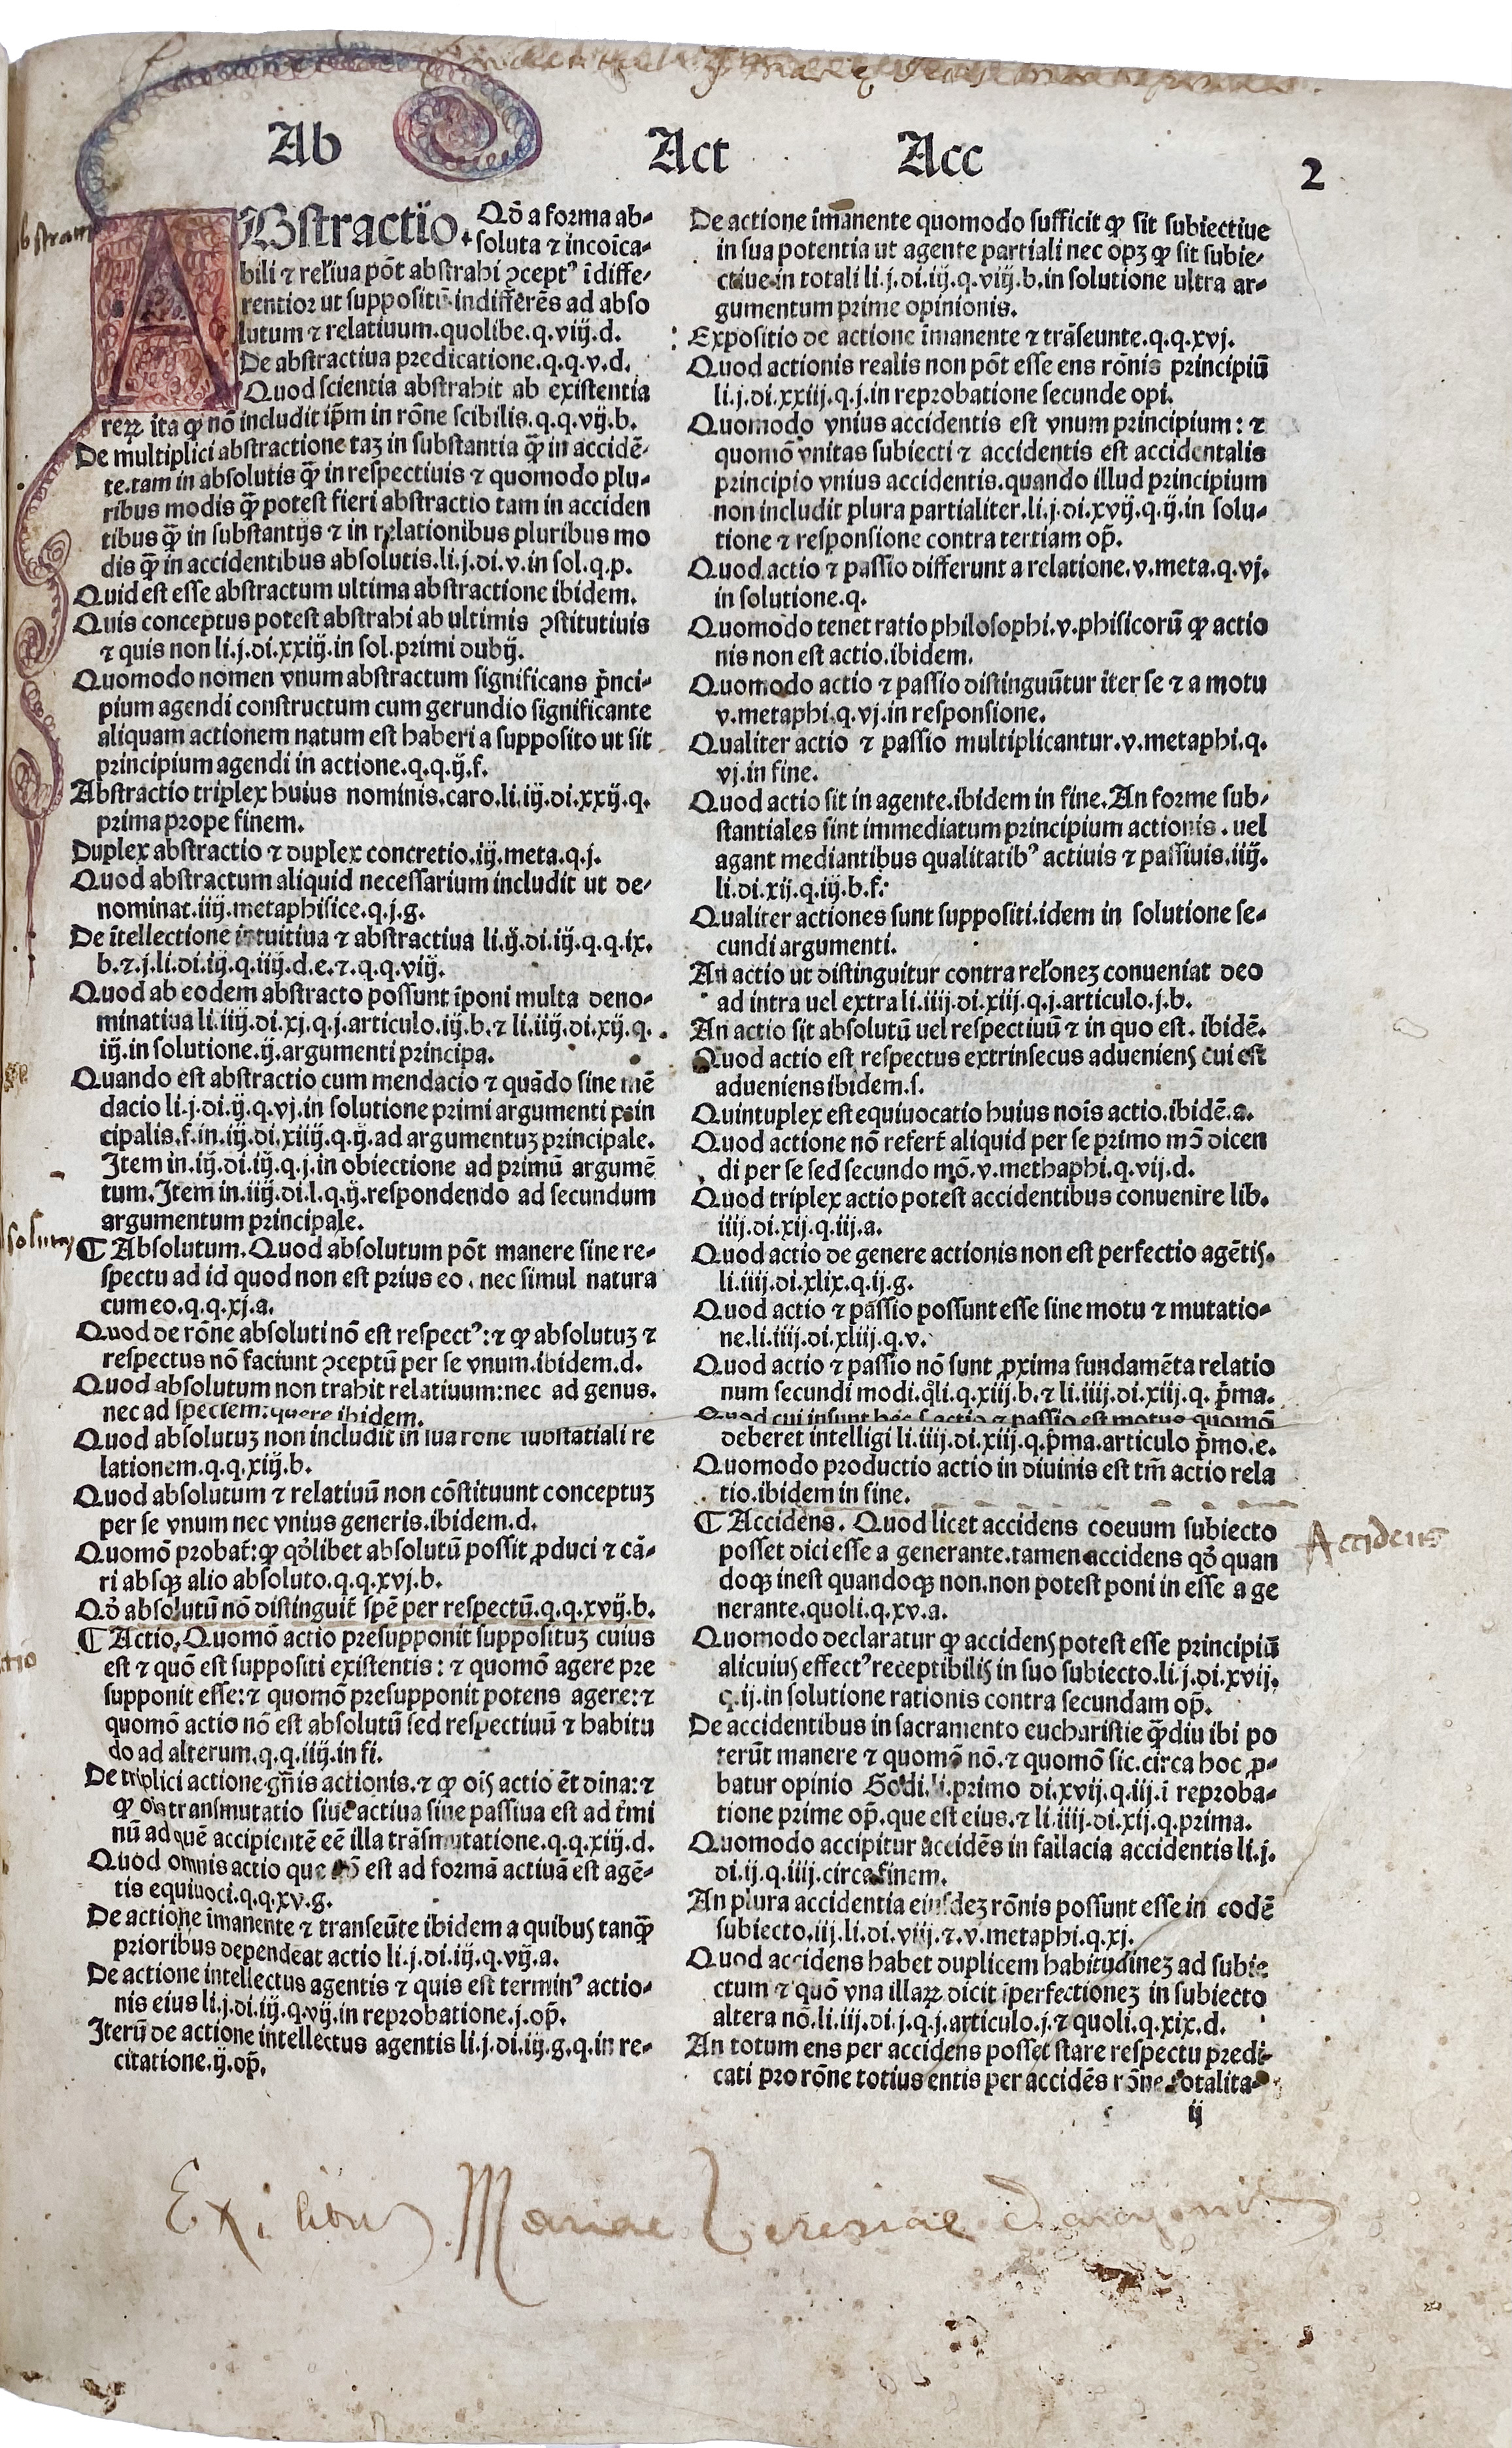 Ab Act Acc 2
ABstractio. Qð a forma ab-
soluta ⁊ incoĩca-
bili ⁊ rel'iua põt abstrahi ꝯceptꝰ ĩdiffe-
rentior ut suppositũ indifferẽs ad abso
lutum ⁊ relatiuum.quolibe.q.viij.d.
De abstractiua predicatione.q.q.v.d.
Quod scientia abstrahit ab existentia
reꝝ ita ꝙ nõ includit ip̃m in rõne scibilis.q.q.vij.b.
De multiplici abstractione taꝫ in substantia q̃ȝ in accidẽ-
te.tam in absolutis q̃ȝ in respectiuis ⁊ quomodo plu-
ribus modis q̃ȝ potest fieri abstractio tam in acciden
tibus q̃ȝ in substantijs ⁊ in relationibus pluribus mo
dis q̃ȝ in accidentibus absolutis.li.j.di.v.in sol.q.p.
Quid est esse abstractum ultima abstractione ibidem.
Quis conceptus potest abstrahi ab ultimis ꝯstitutiuis
⁊ quis non li.j.di.xxiij.in sol.primi dubij.
Quomodo nomen vnum abstractum significans p̃nci-
pium agendi constructum cum gerundio significante
aliquam actionem natum est haberi a supposito ut sit
principium agendi in actione.q.q.ij.f.
Abstractio triplex huius nominis.caro.li.iij.di.xxij.q.
prima prope finem.
Duplex abstractio ⁊ duplex concretio.iij.meta.q.j.
Quod abstractum aliquid necessarium includit ut de-
nominat.iiij.metaphisice.q.j.g.
De ĩtellectione intuitiua ⁊ abstractiua li.ij.di.iij.q.q.ix.
b.⁊.j.li.di.iij.q.iiij.d.e.⁊.q.q.viij.
Quod ab eodem abstracto possunt ĩponi multa deno-
minatiua li.iiij.di.xj.q.j.articulo.iij.b.⁊ li.iiij.di.xij.q.
iij.in solutione.ij.argumenti principa.
Quando est abstractio cum mendacio ⁊ quãdo sine mẽ
dacio li.j.di.ij.q.vj.in solutione primi argumenti prin
cipalis.f.in.iij.di.xiiij.q.ij.ad argumentuꝫ principale.
Item in.iij.di.iij.q.j.in obiectione ad primũ argumẽ
tum.Item in.iiij.di.l.q.ij.respondendo ad secundum
argumentum principale.
¶ Absolutum.Quod absolutum põt manere sine re-
spectu ad id quod non est prius eo.nec simul natura
cum eo.q.q.xj.a.
Quod de rõne absoluti nõ est respectꝰ:⁊ ꝙ absolutuꝫ ⁊
respectus nõ faciunt ꝯceptũ per se vnum.ibidem.d.
Quod absolutum non trahit relatiuum:nec ad genus.
nec ad speciem:quere ibidem.
Quod absolutuꝫ non includit in sua rone substãtiali re
lationem.q.q.xiij.b.
Quod absolutum ⁊ relatiuũ non cõstituunt conceptuꝫ
per se vnum nec vnius generis.ibidem.d.
Quomõ probat̃:ꝙ qðlibet absolutũ possit ꝓduci ⁊ cã-
ri absqꝫ alio absoluto.q.q.xvj.b.
Qð absolutũ nõ distinguit̃ spẽ per respectũ.q.q.xvij.b.
¶ Actio.Quomõ actio presupponit supposituꝫ cuius
est ⁊ quõ est suppositi existentis:⁊ quomõ agere pre
supponit esse:⁊ quomõ presupponit potens agere:⁊
quomõ actio nõ est absolutũ sed respectiuũ ⁊ habitu
do ad alterum.q.q.iiij.in fi.
De triplici actione gñis actionis.⁊ ꝙ ois actio ẽt diña:⁊
ꝙ ois transmutatio siue actiua siue passiua est ad t̃mi
nũ ad quẽ accipientẽ eẽ illa trãsmutatione.q.q.xiij.d.
Quod omnis actio que est ad formã actiuã est agẽ-
tis equiuoci.q.q.xv.g.
De actione imanente ⁊ transeũte ibidem a quibus tanq̃ȝ
prioribus dependeat actio li.j.di.iij.q.vij.a.
De actione intellectus agentis ⁊ quis est terminꝰ actio-
nis eius li.j.di.iij.q.vij.in reprobatione.j.op̃.
Iterũ de actione intellectus agentis li.j.di.iij.g.q.in re-
citatione.ij.op̃.
De actione imãnente quomodo sufficit ꝙ sit subiectiue
in sua potentia ut agente partiali nec opꝫ ꝙ sit subie-
ctiue in totali li.j.di.iij.q.viij.b.in solutione ultra ar-
gumentum prime opinionis.
Expositio de actione ĩmanente ⁊ trãseunte.q.q.xvj.
Quod actionis realis non põt esse ens rõnis principiũ
li.j.di.xxiij.q.j.in reprobatione secunde opi.
Quomodo vnius accidentis est vnum principium:⁊
quomõ vnitas subiecti ⁊ accidentis est accidentalis
principio vnius accidentis.quando illud principium
non includit plura partialiter.li.j.di.xvij.q.ij.in solu-
tione ⁊ responsione contra tertiam op̃.
Quod actio ⁊ passio differunt a relatione.v.meta.q.vj.
in solutione.q.
Quomodo tenet ratio philosophi.v.phisicorũ ꝙ actio
nis non est actio.ibidem.
Quomodo actio ⁊ passio distinguũtur iter se ⁊ a motu
v.metaphi.q.vj.in responsione.
Qualiter actio ⁊ passio multiplicantur.v.metaphi.q.
vj.in fine.
Quod actio sit in agente.ibidem in fine.An forme sub-
stantiales sint immediatum principium actionis.uel
agant mediantibus qualitatibꝰ actiuis ⁊ passiuis.iiij.
li.di.xij.q.iij.b.f.
Qualiter actiones sunt suppositi.idem in solutione se-
cundi argumenti.
An actio ut distinguitur contra rel'oneꝫ conueniat deo
ad intra uel extra li.iiij.di.xiij.q.j.articulo.j.b.
An actio sit absolutũ uel respectiuũ ⁊ in quo est.ibidẽ.
Quod actio est respectus extrinsecus adueniens cui est
adueniens ibidem.f.
Quintuplex est equiuocatio huius nois actio.ibidẽ.a.
Quod actione nõ refert̃ aliquid per se primo mõ dicen
di per se sed secundo mõ.v.methaphi.q.vij.d.
Quod triplex actio potest accidentibus conuenire lib.
iiij.di.xij.q.iij.a.
Quod actio de genere actionis non est perfectio agẽtis.
li.iiij.di.xlix.q.ij.g.
Quod actio ⁊ passio possunt esse sine motu ⁊ mutatio-
ne.li.iiij.di.xliij.q.v.
Quod actio ⁊ passio nõ sunt ꝓxima fundamẽta relatio
num secundi modi.qͦli.q.xiij.b.⁊ li.iiij.di.xiij.q. p̃ma.
Quod cui insunt hec s.actio ⁊ passio est motus quomõ
deberet intelligi li.iiij.di.xiij.q.p̃ma.articulo p̃mo.e.
Quomodo productio actio in diuinis est tm̃ actio rela
tio.ibidem in fine.
¶ Accidẽs. Quod licet accidens coeuum subiecto
posset dici esse a generante.tamen accidens qð quan
doqꝫ inest quandoqꝫ non.non potest poni in esse a ge
nerante.quoli.q.xv.a.
Quomodo declaratur ꝙ accidens potest esse principiũ
alicuius effectꝰ receptibilis in suo subiecto.li.j.di.xvij.
q.ij.in solutione rationis contra secundam op̃.
De accidentibus in sacramento eucharistie q̃ȝdiu ibi po
terũt manere ⁊ quomõ nõ.⁊ quomõ sic.circa hoc ꝓ-
batur opinio Godi.li.primo di.xvij.q.iij.ĩ reproba-
tione prime op̃.que est eius.⁊ li.iiij.di.xij.q.prima.
Quomodo accipitur accidẽs in fallacia accidentis li.j.
di.ij.q.iiij.circa finem.
An plura accidentia eiusdeꝫ rõnis possunt esse in eodẽ
subiecto.iij.li.di.viij.⁊.v.metaphi.q.xj.
Quod accidens habet duplicem habitudineꝫ ad subie
ctum ⁊ quõ vna illaꝝ dicit ĩperfectioneꝫ in subiecto
altera nõ.li.iij.di.j.q.j.articulo.j.⁊ quoli.q.xix.d.
An totum ens per accidens posset stare respectu predi-
cati pro rõne totius entis per accidẽs rõne totalita-
ij
Accidens
Ex libris Mariae Teresiae